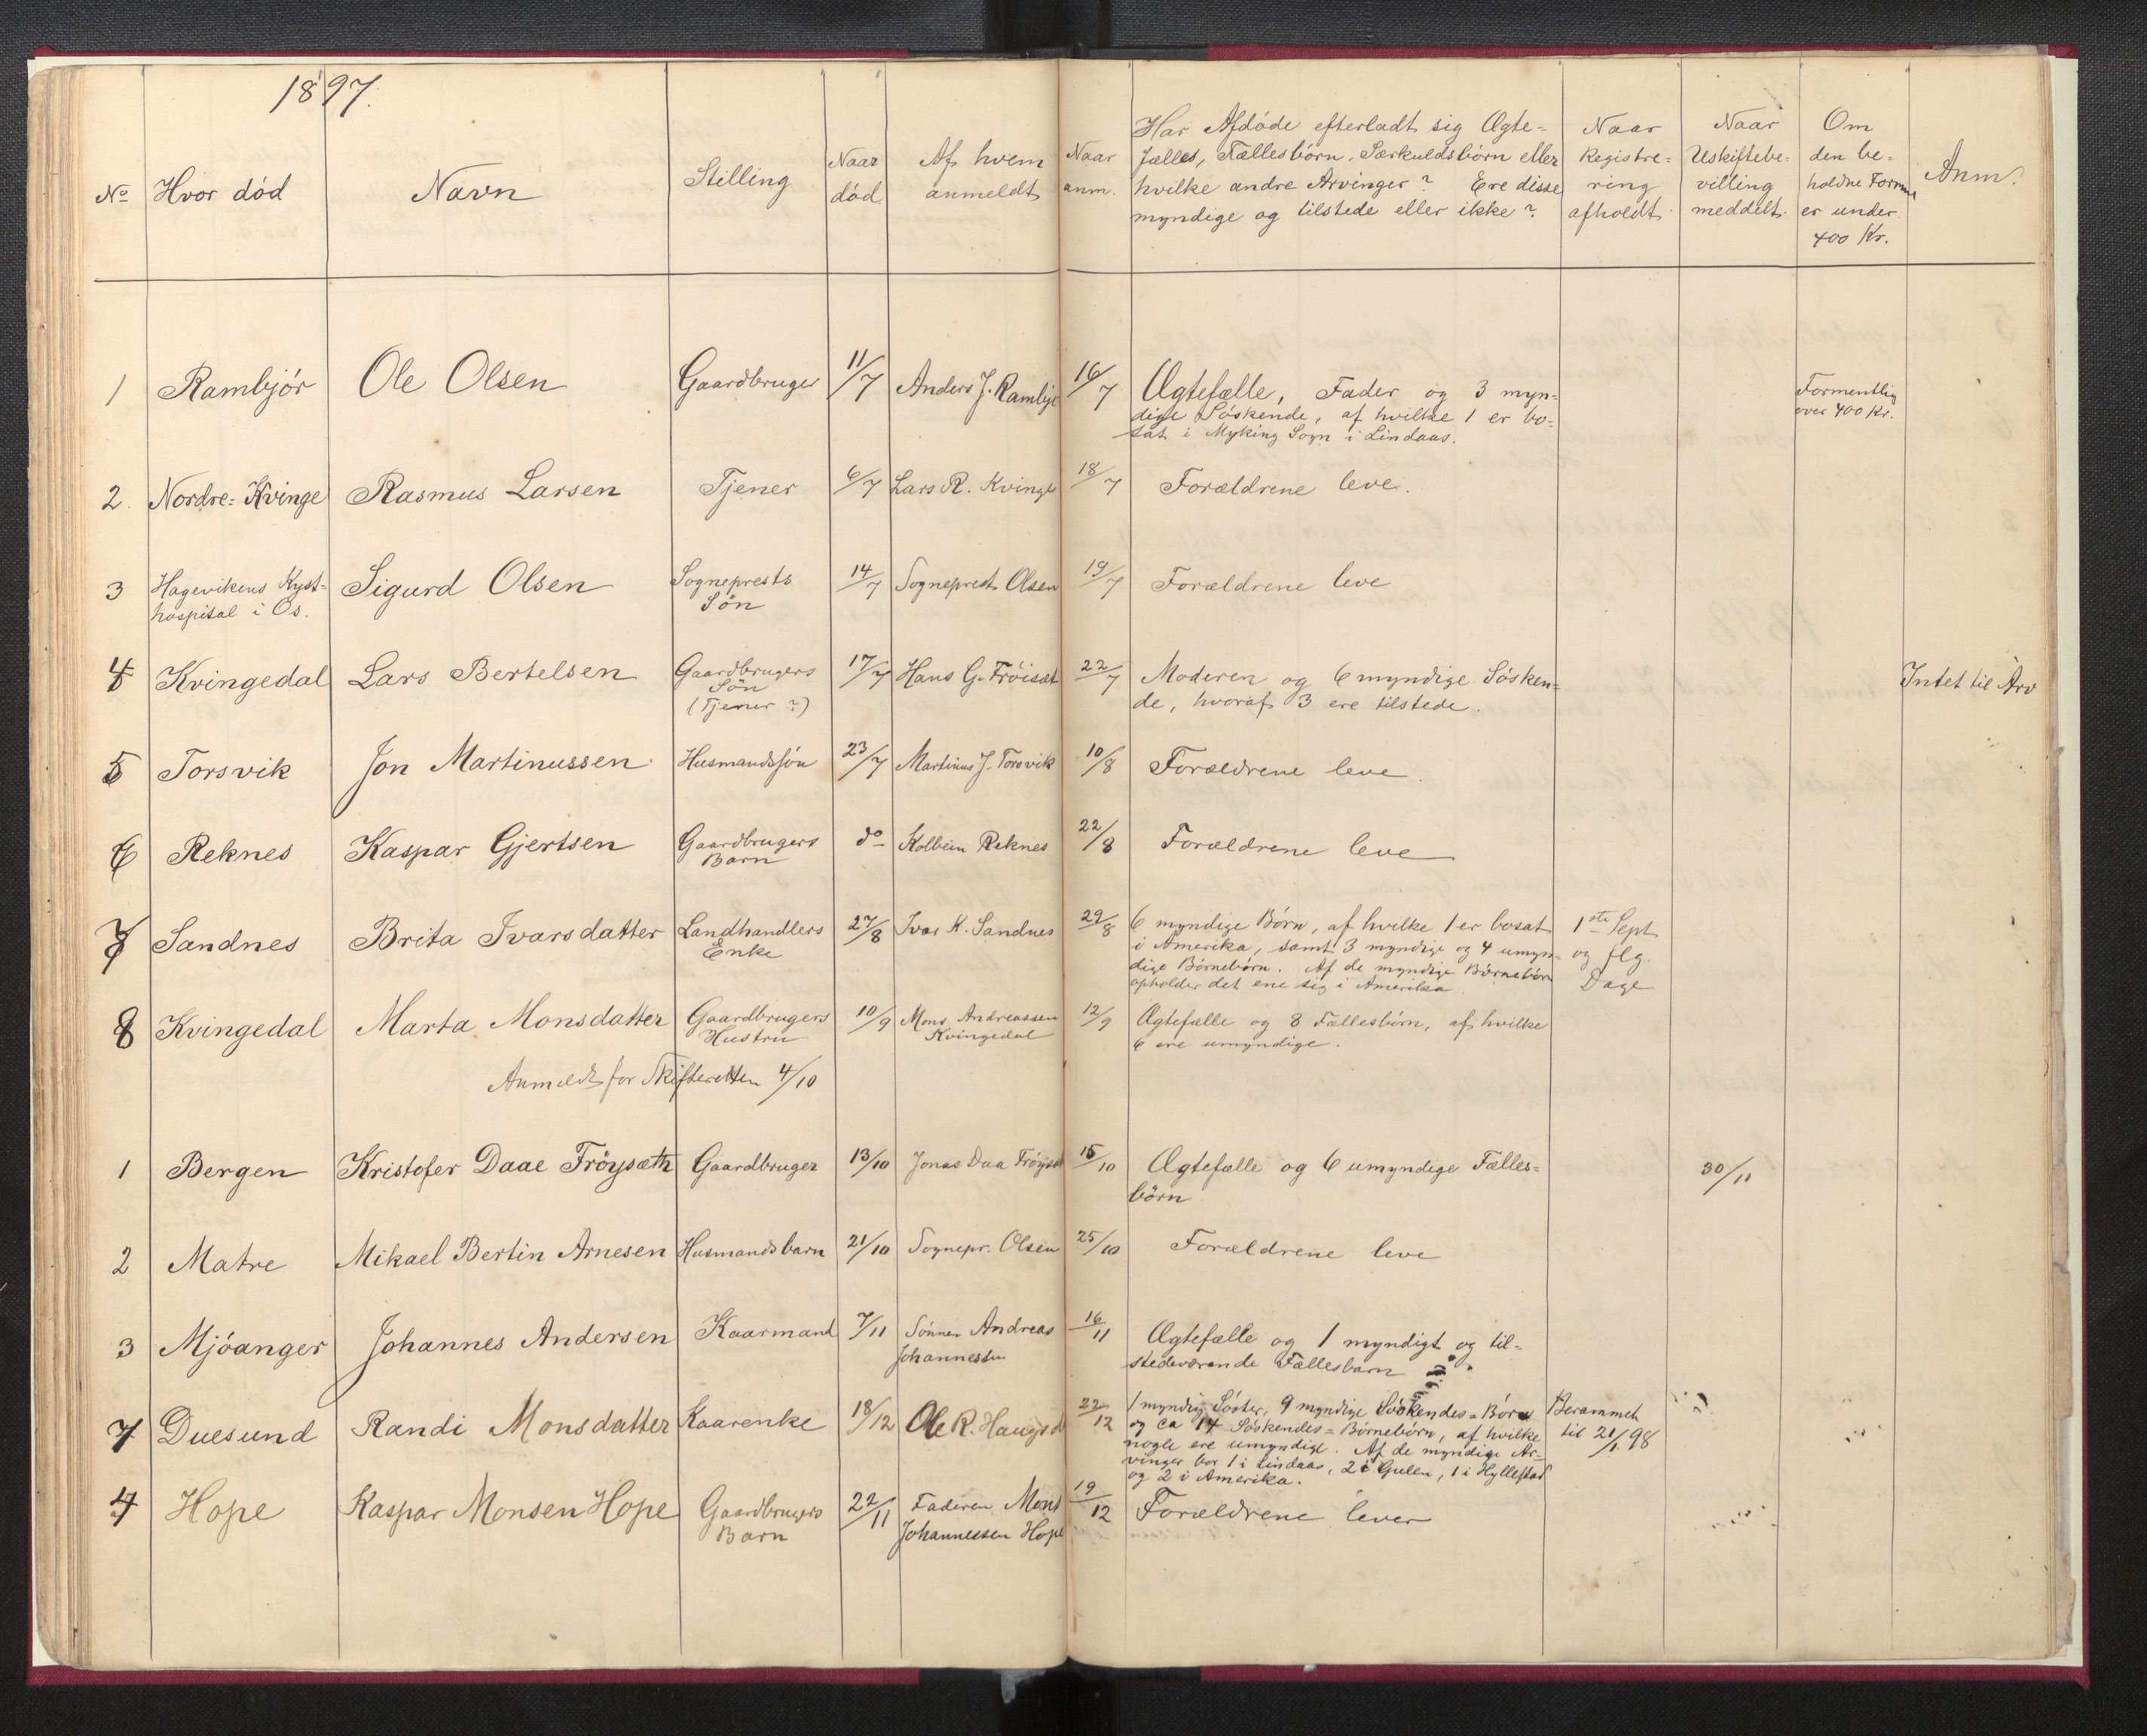 1897.
No Hvor död Navn Stilling Naar död. Af hvem anmeldt Naar anm. Har Afdöde efterladt sig Ægte-
fælles, Fællesbörn, Særkuldsbörn eller
hvilke andre Arvinger? Ere disse
myndige og tilstede eller ikke?
Naar
Registre-
ring
afholdt.
Naar
Uskiftebe-
villing
meddelt.
Om
den be-
holdne Formue
er under
400 Kr.
Anm.
1 Rambjör Ole Olsen Gaardbruger 11/7 Anders J. Rambjör 16/7 Ægtefælle, Fader og 3 myn-
dige Söskende, af hvilke 1 er bo-
sat i Myking Sogn i Lindaas.
Formentlig
over 400 Kr.
2. Nordre-Kvinge Rasmus Larsen Tjener 6/7 Lars R. Kvinge 18/7 Forældrene leve.
3 Hagevikens Kyst-
hospital i Os. Sigurd Olsen Sogneprests
Sön 14/7 Sogneprest Olsen 19/7 Forældrene leve
4 Kvingedal Lars Bertelsen Gaardbrugers
Sön
(Tjener?) 17/7 Hans G. Fröisæt 22/7 Moderen og 6 myndige Sösken-
de, hvoraf 3 ere tilstede.
Intet til Arv
5 Torsvik Jon Martinussen Husmandssön 23/7 Martinus J. Torsvik 10/8 Forældrene leve.
6 Reknes Kaspar Gjertsen Gaardbrugers
Barn do Kolbein Reknes 22/8 Forældrene leve
7 Sandnes Brita Ivarsdatter Landhandlers
Enke 27/8 Ivar K. Sandnes 29/8 6 myndige Börn, af hvilke 1 er bosat
i Amerika, samt 3 myndige og 4 umyn-
dige Börnebörn. Af de myndige Börnebörn
opholder det ene sig i Amerika.
1ste Sept
og flg.
Dage
8 Kvingedal Marta Monsdatter Gaardbrugers
Hustru 10/9 Mons Andreassen
Kvingedal 12/9 Ægtefælle og 8 Fællesbörn, af hvilke
6 ere umyndige.
Anmeldt for Skifteretten 4/10
1 Bergen Kristofer Daae Fröysæth Gaardbruger 13/10 Jonas Daa Fröysæt 15/10 Ægtefælle og 6 umyndige Fælles-
börn
30/11
2 Matre Mikael Bertin Arnesen Husmandsbarn 21/10 Sognepr. Olsen 25/10 Forældrene leve
3 Mjöanger Johannes Andersen Kaarmand 7/11 Sönnen Andreas
Johannessen 16/11 Ægtefælle og 1 myndigt og til-
stedeværende Fællesbarn
7 Duesund Randi Monsdatter Kaarenke 18/12 Ole R. Haugsd 22/12 1 myndig Söster, 9 myndige Söskendes-Börn
og ca 14 Söskendes-Börnebörn, af hvilke
nogle ere umyndige. Af de myndige Ar-
vinger bor 1 i Lindaas, 2 i Gulen, 1 i Hyllestad
og 2 i Amerika.
Berammet
til 21/1 98
4 Hope Kaspar Monsen Hope Gaardbrugers
Barn 22/11 Faderen Mons
Johannessen Hope 19/12 Forældrene lever